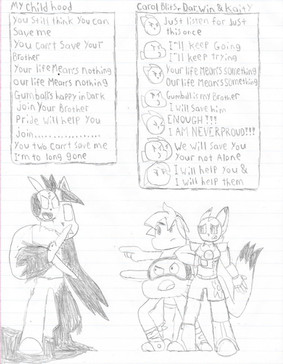 My Child hood
You Still think You can
Save me
You Can't Save Your
Brother
Your life Mean's nothing
Our life Means nothing
Gumball's happy in Dark
Join Your Brother
Pride will help You
Join................
You two Can't save me
I'm to long gone
Carol Blits, Darwin & Kait
Just listen for Just
this once
I'll keep Going
I'll keep trying
Your life Mean's something
Our life Means something
Gumball is my Brother
I will save him
ENOUGH???!
I AM NEVER PROUD?!!
We will Save You
Your not Alone
I will help You &
I will help them